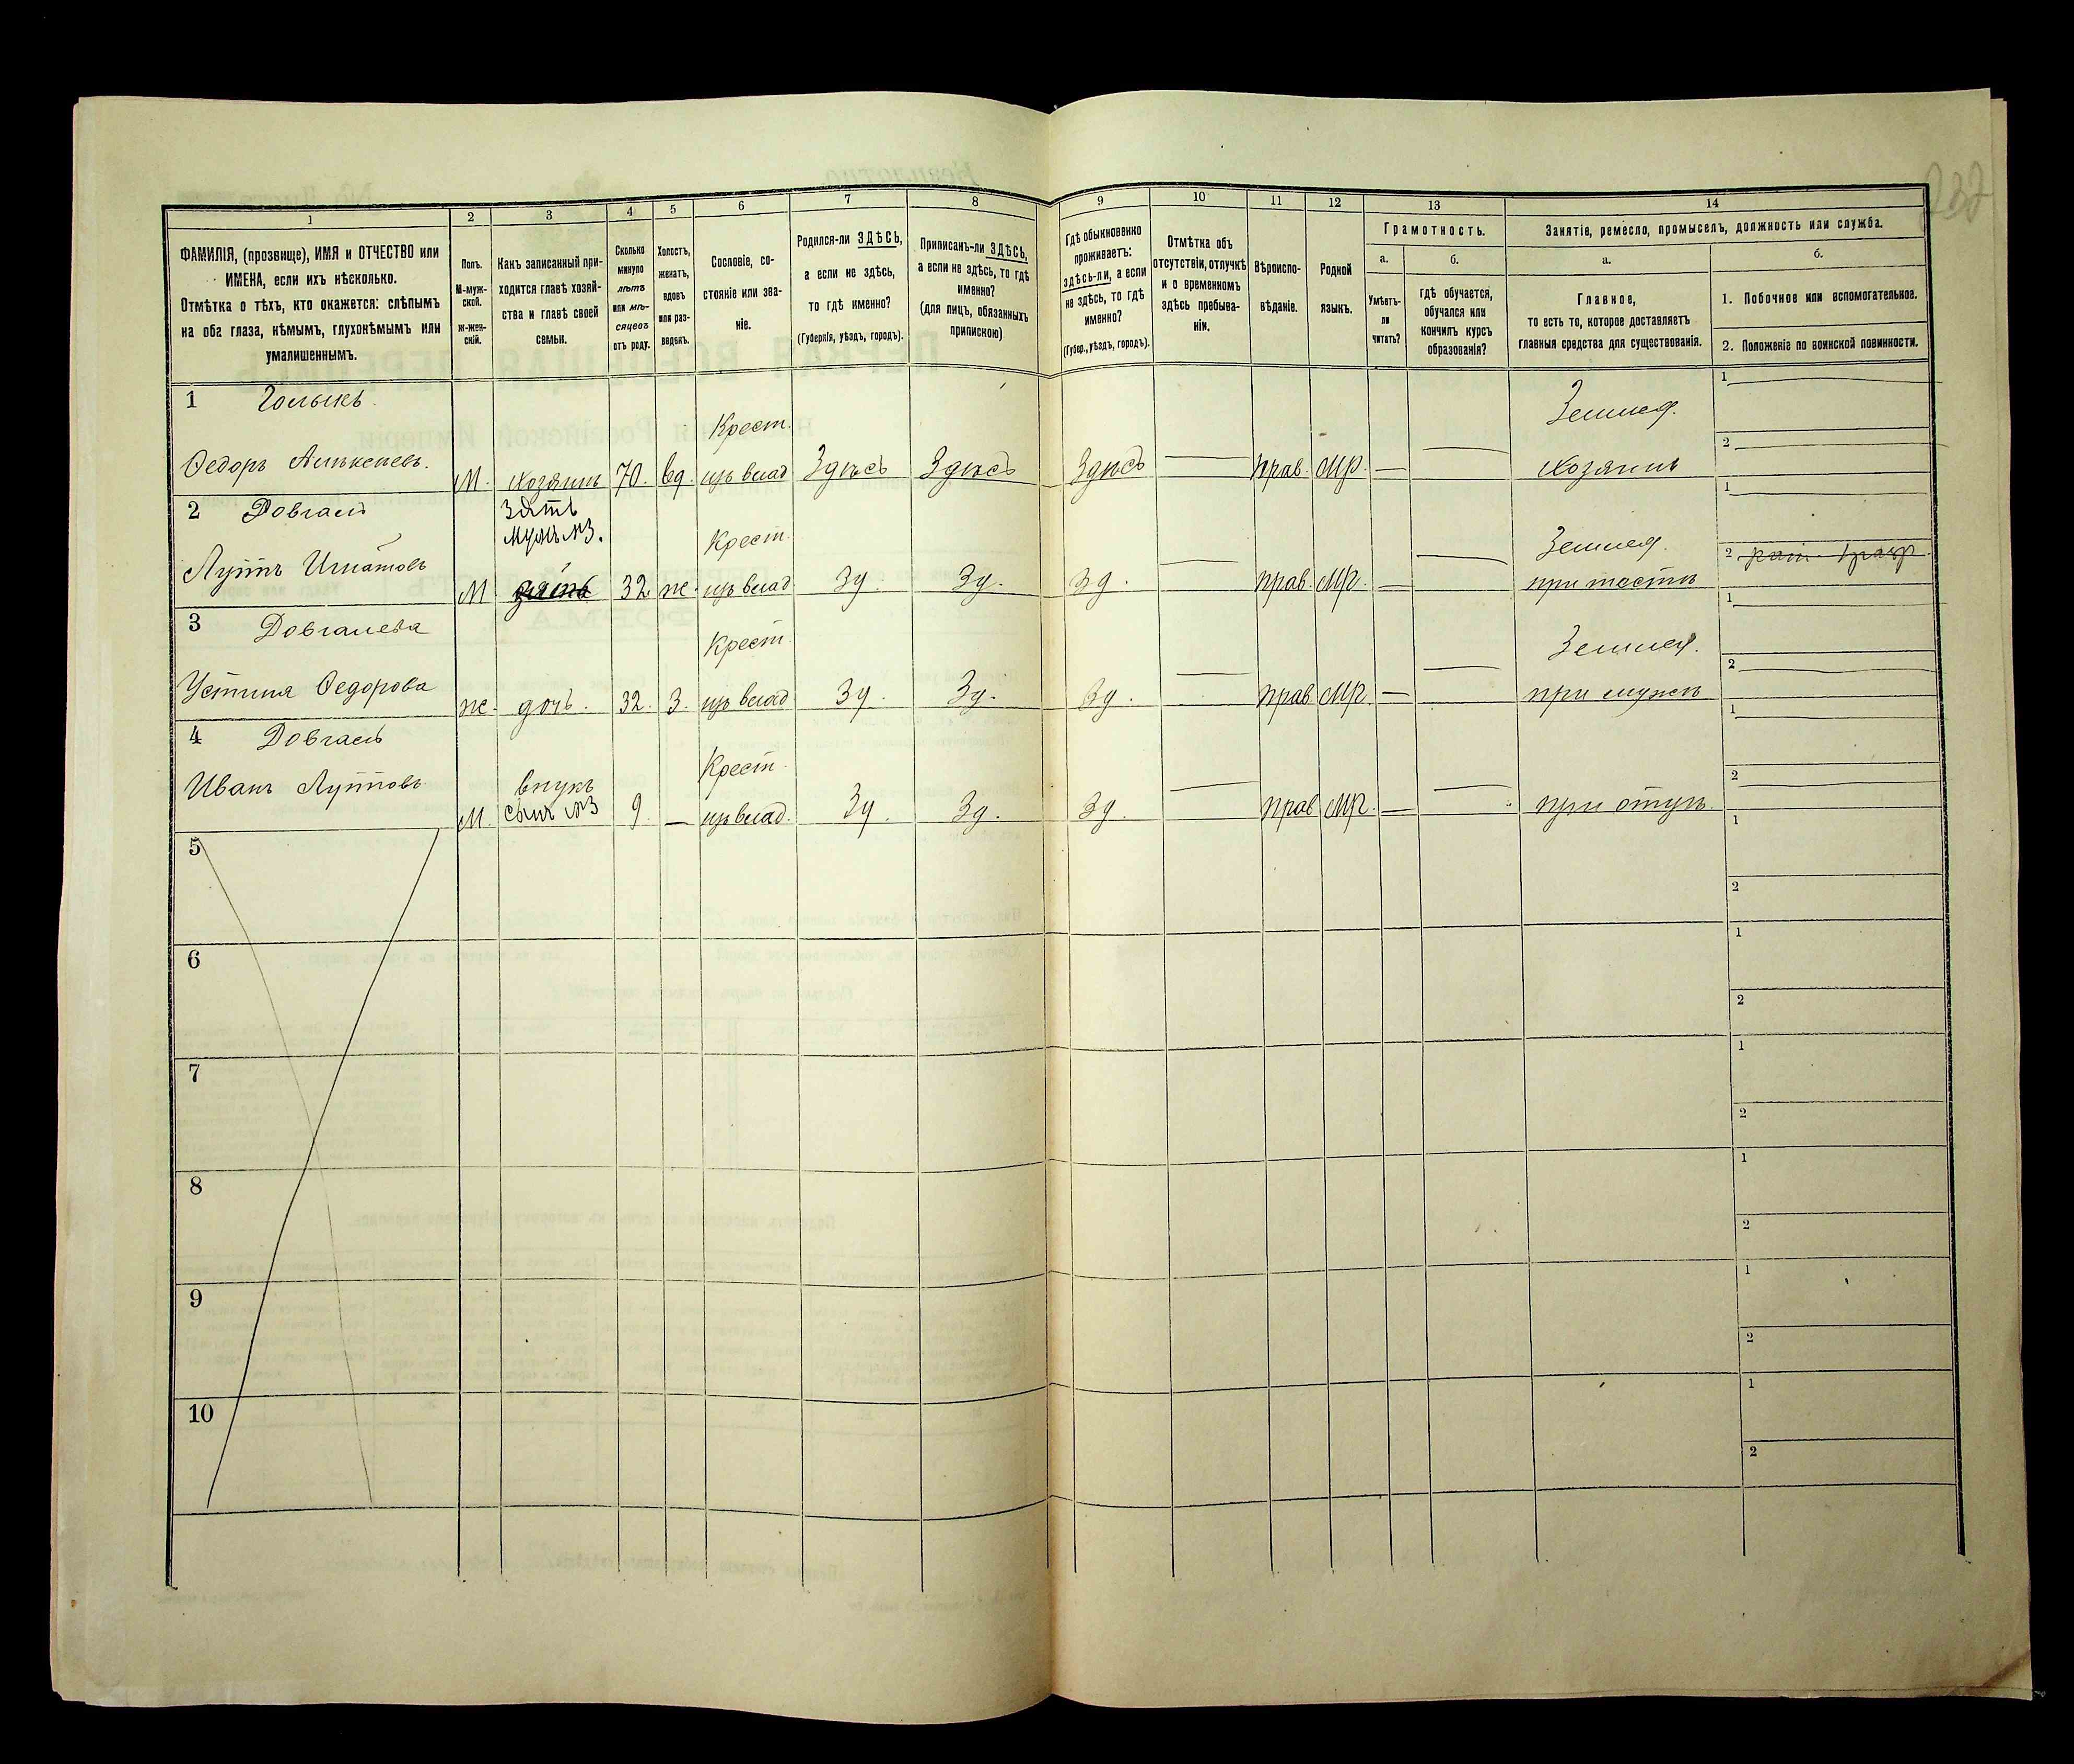 1 2 3 4 5 6 7 8 9 10 11 12 13 14
ФАМИЛІЯ, (прозвище), ИМЯ и ОТЧЕСТВО или
ИМЕНА, если ихъ нѣсколько.
Отмѣтка о тѣхъ, кто окажется: слѣпымъ
на оба глаза, нѣмымъ, глухонѣмымъ или
умалишеннымъ.
Полъ.
М-муж-
ской.
Ж-жен-
скій.
Какъ записанный при-
ходится главѣ хозяй-
ства и главѣ своей
семьи.
Сколько
минуло
лѣтъ
или мѣ-
сяцевъ
отъ роду.
Холостъ,
женатъ,
вдовъ
или раз-
веденъ.
Сословіе, со-
стояніе или зва-
ніе.
Родился-ли ЗДѢСЬ,
а если не здѣсь,
то гдѣ именно?
(Губернія, уѣздъ, городъ).
Приписанъ-ли ЗДѢСЬ,
а если не здѣсь, то гдѣ
именно?
(для лицъ, обязанныхъ
припискою)
Гдѣ обыкновенно
проживаетъ:
здѣсь-ли, а если
не здѣсь, то гдѣ
именно?
(Губер., уѣздъ, городъ).
Отмѣтка объ
отсутствіи, отлучкѣ
и о временномъ
здѣсь пребыва-
ніи.
Вѣроиспо-
вѣданіе.
Родной
языкъ.
Грамотность.
а.
Умѣетъ-
ли
читать?
б.
гдѣ обучается,
обучался или
кончилъ курсъ
образованія?
Занятіе, ремесло, промыселъ, должность или служба.
а.
Главное,
то есть то, которое доставляетъ
главныя средства для существованія.
б.
1. Побочное или вспомогательное.
2. Положеніе по воинской повинности.
1 Голыкъ Крест. Землед. 1
2
Федоръ Алексѣевъ. М. хозяинъ 70. вд. изъ влад Здѣсь Здѣсь Здѣсь — прав. мр. — — хозяинъ
2 Довгаль Зять Крест. Землед. 1
мужъ №3. 2
Игнатовъ М зять 32 ж. изъ влад Зд. Зд. Зд. — прав. мр. — — при тестѣ
3 Довгалева Крест. Землед. 1
2
Устинья Федорова ж. дочь. 32. З. изъ влад Зд. Зд. Зд. — прав. мр. — — при мужѣ
4 Довгаль Крест. 1
внукъ 2
Иванъ М. сынъ №3 9. — изъ влад. Зд. Зд. Зд. — прав мр. — — при отцѣ.
5 1
2
6 1
2
7 1
2
8 1
2
9 1
2
10 1
2